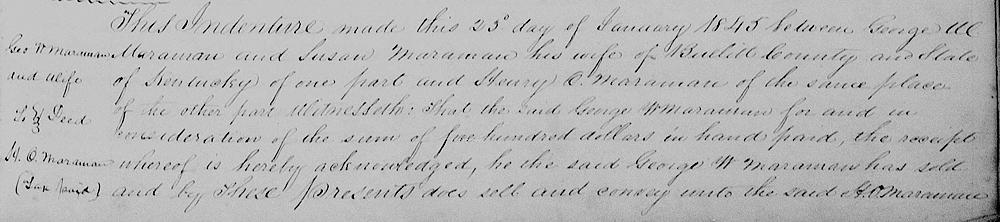 This Indenture made this 25th day of January 1845 between George W
Maraman and Susan Maraman his wife of Bullitt County and State
of Kentucky of one part and Henry C. Maraman of the same place
of the other part Witnesseth: That the said George W Maraman for and in
consideration of the sum of five hundred dollars in hand paid, the receipt
whereof is hereby acknowledged, he the said George W Maraman has sold
and by These presents does sell and convey unto the said H.C. Maraman
Geo W Maraman
and Wife
Deed
H. C. Maraman
(Tax paid)